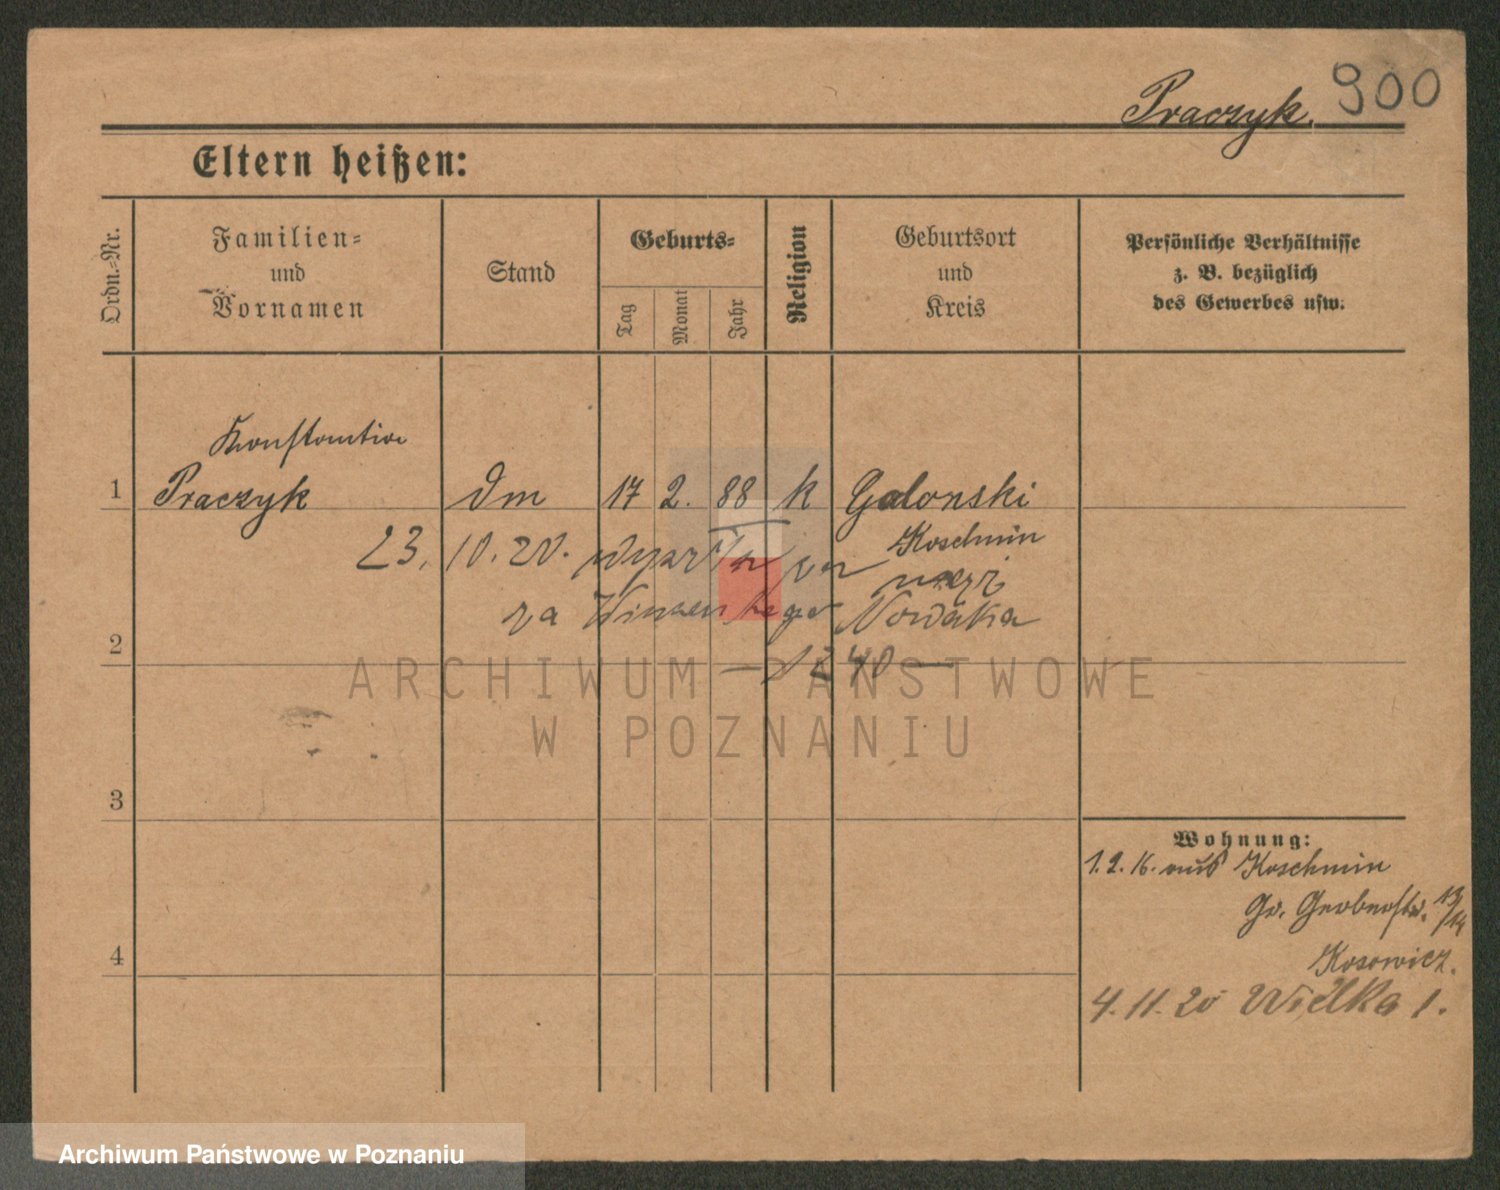 Praczyk. 900
Eltern heißen:
Ordn.-Nr.
Familien-
und
Vornamen
Stand
Geburts-
Tag
Monat
Jahr
Religion
Geburtsort
und
Kreis
Persönliche Verhältnisse
z. B. bezüglich
des Gewerbes usw.
Konstantin
1 Praczyk Dm 17 2. 88 k Galonski
Koschmin
23. 10. 20.
za Nowaka
2
ARCHIWUM PAŃSTWOWE
W POZNANIU
3
Wohnung:
1. 2. 16. aus Koschmin
Gr. 13/14
Kosowicz.
4
4. 11. 20 Wielka 1.
Archiwum Państwowe w Poznaniu